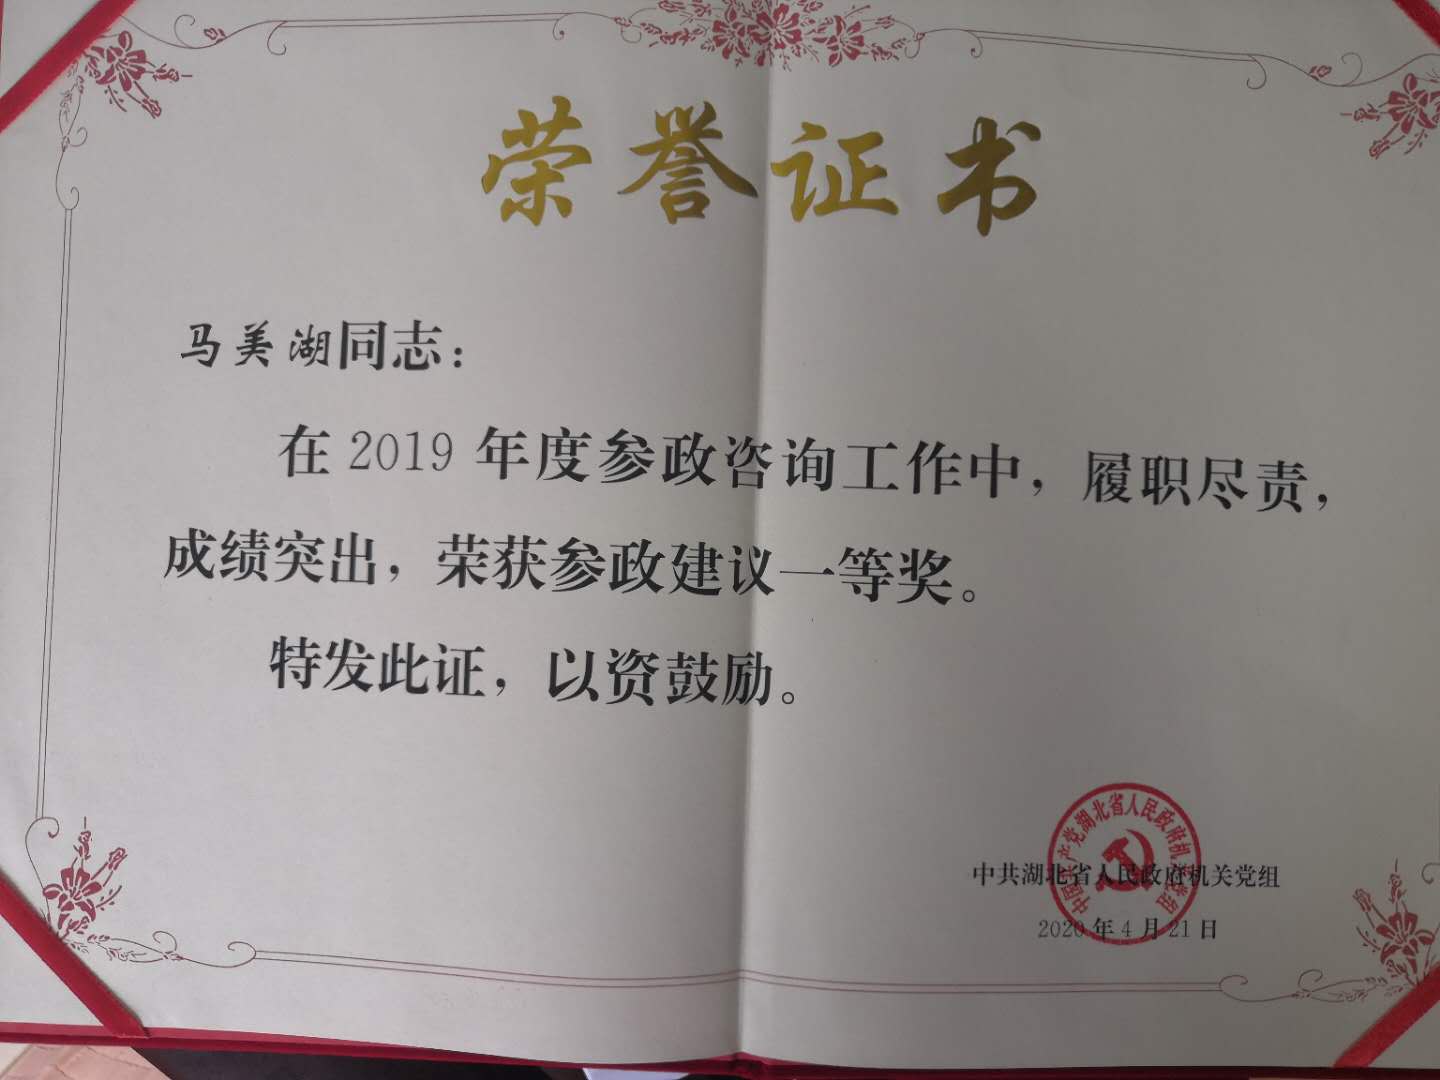 荣誉证书
马美湖同志：
在 2019 年度参政咨询工作中，履职尽责，
成绩突出，荣获参政建议一等奖。
特发此证，以资鼓励。
中国共产党湖北省人民政府机关党组
中共湖北省人民政府机关党组
2020 年 4 月 21 日